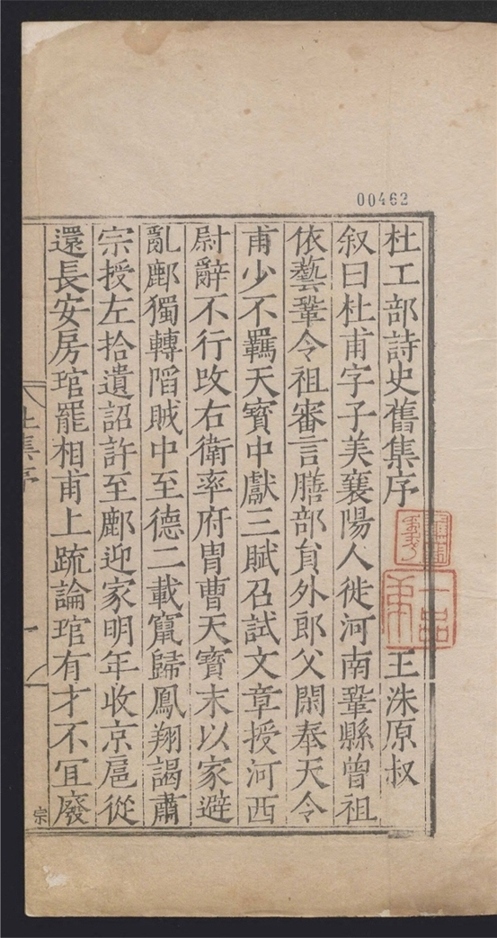 00462
杜工部詩史舊集序
王洙原叔
叙曰杜甫字子美襄陽人徙河南鞏縣曾祖
依藝鞏令祖審言膳部貟外郎父閑奉天令
甫少不羈天寳中獻三賦召試文章授河西
尉辭不行改右衛率府胄曹天寳末以家避
亂鄜獨轉䧟賊中至德二載竄歸鳳翔謁肅
宗授左拾遺詔許至鄜迎家明年收京扈從
還長安房琯罷相甫上䟽論琯有才不冝廢
杜集序
一
宗